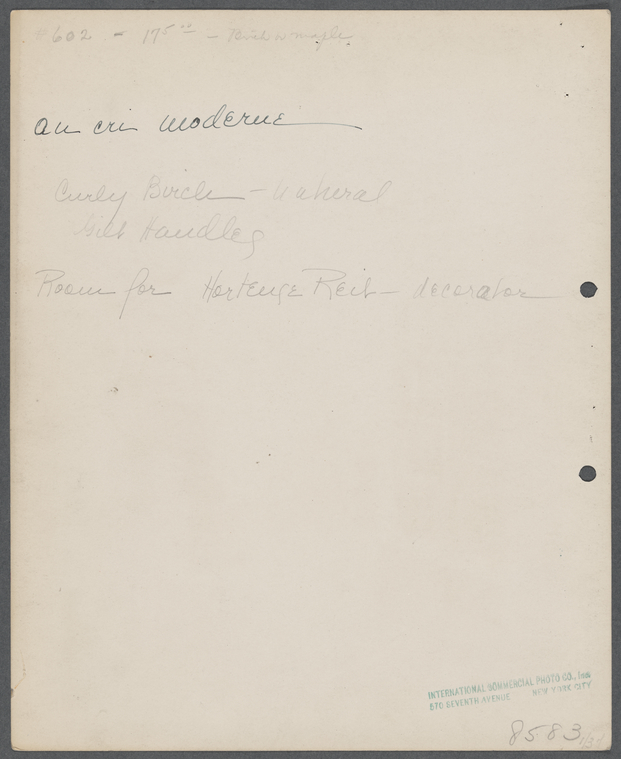 #602 - 17⁵⁰ - Birch or maple
au cri moderne
Curly Birch - natural
Gilt Handles
Room for Hortense Reit - decorator
INTERNATIONAL COMMERCIAL PHOTO CO., Inc.
570 SEVENTH AVENUE NEW YORK CITY
8583